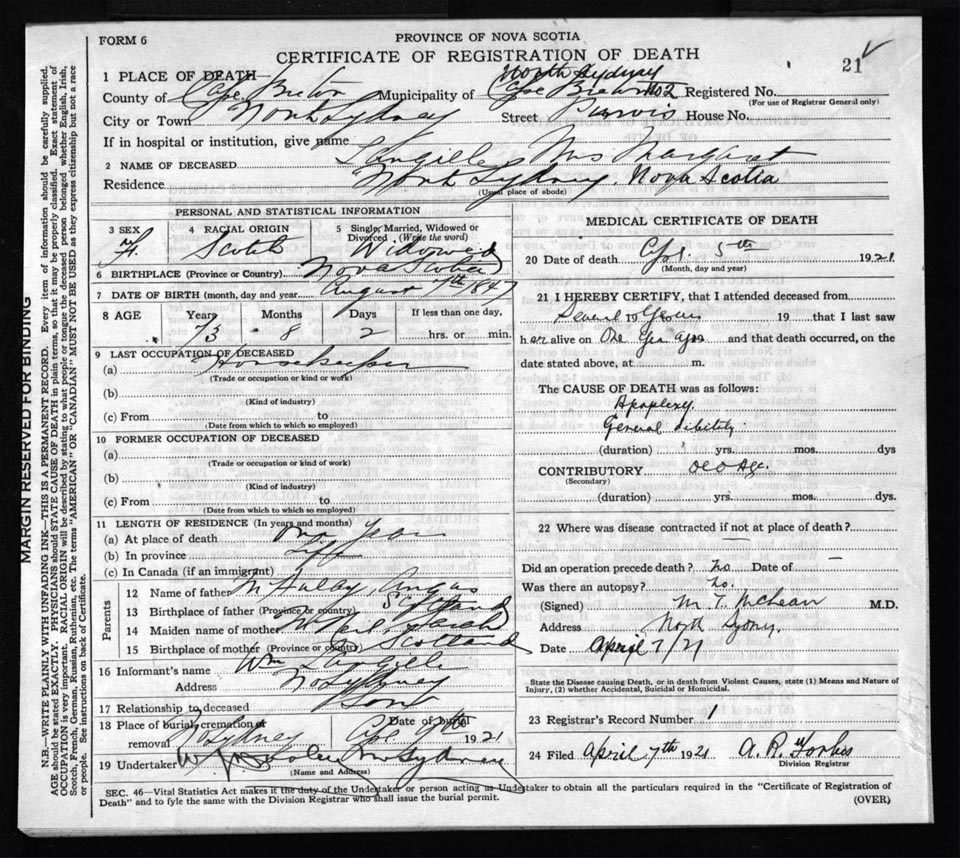 FORM 6
PROVINCE OF NOVA SCOTIA
CERTIFICATE OF REGISTRATION OF DEATH
21
1 PLACE OF DEATH—
North Sydney
County of Cape Breton Municipality of Cape Breton 102 Registered No.
(For use of Registrar General only)
City or Town North Sydney Street Purvis House No.
If in hospital or institution, give name
2 NAME OF DECEASED Langille Mrs Margaret
Residence North Sydney, Nova Scotia
(Usual place of abode)
PERSONAL AND STATISTICAL INFORMATION
3 SEX F. 4 RACIAL ORIGIN Scotch 5 Single, Married, Widowed or Divorced (Write the word) Widowed
6 BIRTHPLACE (Province or Country) Nova Scotia
7 DATE OF BIRTH (month, day and year) August 7th 1847
8 AGE Years Months Days If less than one day,
73 8 2 hrs. or min.
9 LAST OCCUPATION OF DECEASED
(a) Housekeeper
(Trade or occupation or kind of work)
(b)
(Kind of industry)
(c) From to
(Date from which to which so employed)
10 FORMER OCCUPATION OF DECEASED
(a)
(Trade or occupation or kind of work)
(b)
(Kind of industry)
(c) From to
(Date from which to which so employed)
11 LENGTH OF RESIDENCE (In years and months)
(a) At place of death One Year
(b) In province Life
(c) In Canada (if an immigrant)
Parents
12 Name of father Angus
13 Birthplace of father (Province or country) Scotland
14 Maiden name of mother McNeil, Sarah
15 Birthplace of mother (Province or country) Scotland
16 Informant's name Wm Langille
Address No Sydney
17 Relationship to deceased Son
18 Place of burial, cremation or removal N Sydney Date of burial Apl 9th 1921
19 Undertaker N Sydney
(Name and Address)
MEDICAL CERTIFICATE OF DEATH
20 Date of death Apl. 5th 1921
(Month, day and year)
21 I HEREBY CERTIFY, that I attended deceased from
Several Years 19 that I last saw
her alive on One Year ago and that death occurred, on the
date stated above, at m.
The CAUSE OF DEATH was as follows:
Apoplexy.
General debility.
(duration) yrs. mos. dys
CONTRIBUTORY Old Age.
(Secondary)
(duration) yrs. mos. dys.
22 Where was disease contracted if not at place of death?
—
Did an operation precede death? no Date of —
Was there an autopsy? no.
(Signed) M. T. McLean M.D.
Address North Sydney
Date April 7/21
State the Disease causing Death, or in death from Violent Causes, state (1) Means and Nature of Injury, (2) whether Accidental, Suicidal or Homicidal.
23 Registrar's Record Number 1
24 Filed April 7th 1921 A. R. Forbes
Division Registrar
SEC. 46—Vital Statistics Act makes it the duty of the Undertaker or person acting as Undertaker to obtain all the particulars required in the "Certificate of Registration of
Death" and to fyle the same with the Division Registrar who shall issue the burial permit.
(OVER)
MARGIN RESERVED FOR BINDING
N.B.—WRITE PLAINLY WITH UNFADING INK—THIS IS A PERMANENT RECORD. Every item of information should be carefully supplied.
AGE should be stated EXACTLY. PHYSICIANS should STATE CAUSE OF DEATH in plain terms, so that it may be properly classified. Exact statement of
OCCUPATION is very important. RACIAL ORIGIN will be described by stating to what people or tongue the deceased person belonged whether English, Irish,
Scotch, French, German, Russian, Ruthenian, etc. The terms "AMERICAN" OR "CANADIAN" MUST NOT BE USED as they express citizenship but not a race
or people. See instructions on back of Certificate.